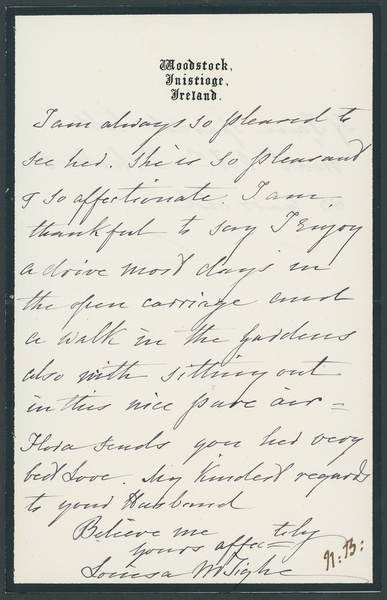 Woodstock,
Inistioge,
Ireland.
I am always so pleased to
see her. She is so pleasant
& so affectionate. I am
thankful to say I Enjoy
a drive most days in
the open carriage and
a walk in the Gardens
also with sitting out
in this nice pure air =
Flora sends you her very
best Love. My Kindest regards
to your Husband
Believe me
yours affectily
Louisa M Tighe
N:B: